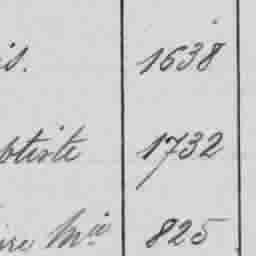 is. 1638
ptiste 1732
ire Mie 825